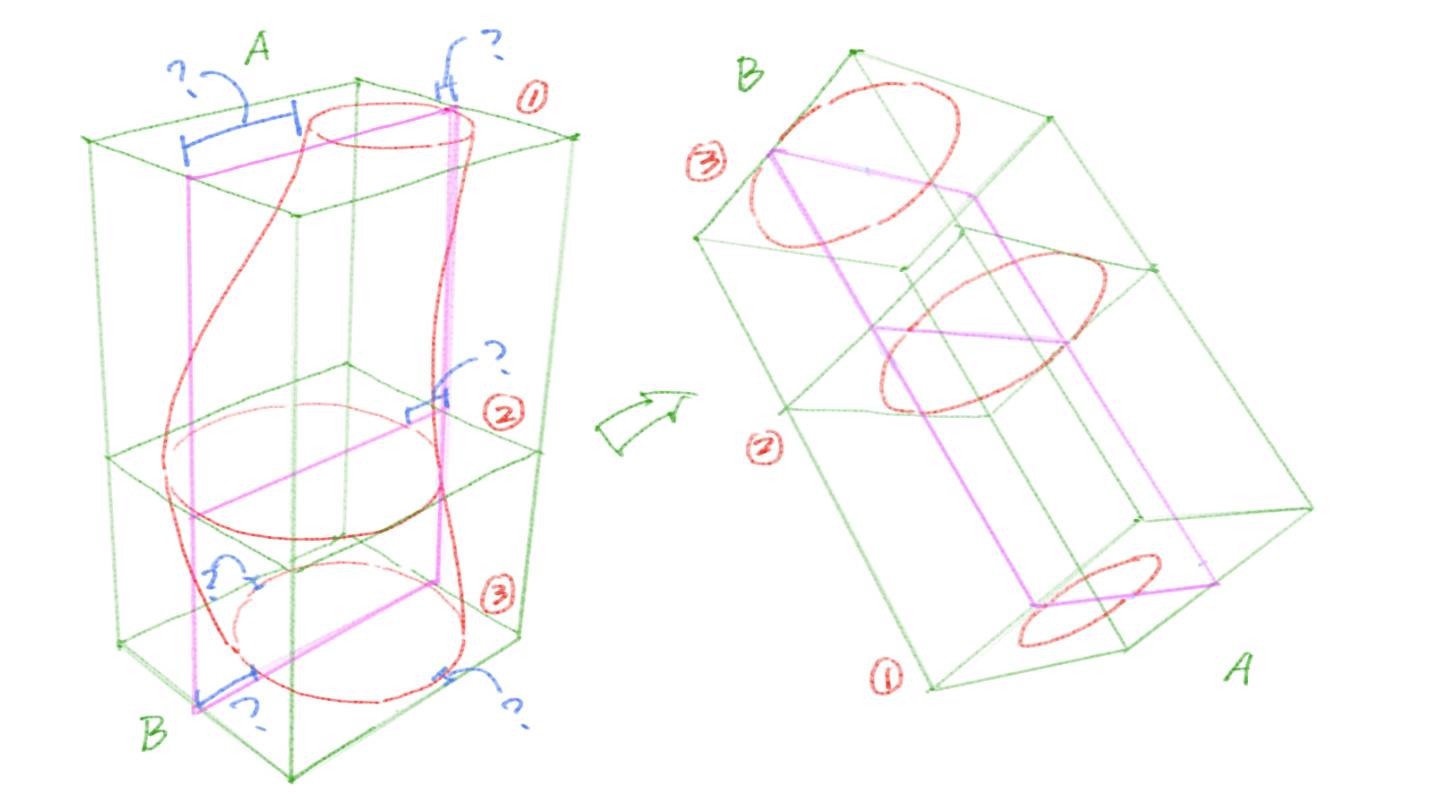 A
?
?
①
?
②
?
③
?
?
B
B
③
②
①
A